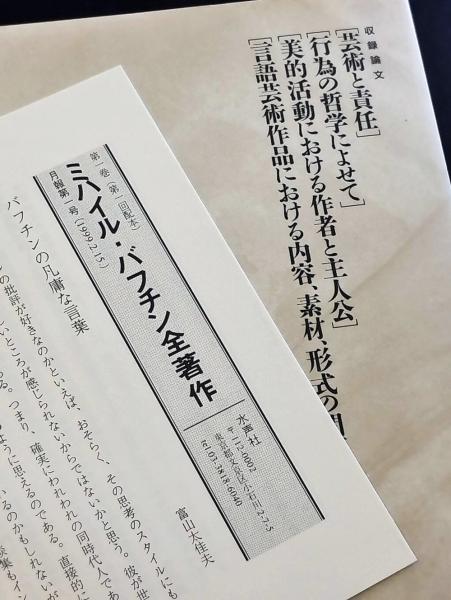 収録論文
[芸術と責任]
[行為の哲学によせて]
[美的活動における作者と主人公]
[言語芸術作品における内容、素材、形式の
第一巻(第一回配本)
月報第一号(1999.2.15)
ミハイル・バフチン全著作
水声社
〒112-0002
東京都文京区小石川2-7-5
tel.03-3818-6040
バフチンの凡庸な言葉
富山太佳夫
の批評が好きなのかといえば、おそらく、その思考のスタイルにも
いところが感じられないからではないかと思う。彼が世
る。つまり、確実にわれわれの同時代人であ
ように思えるのである。直接的に
いるのかもしれないが
集もイン